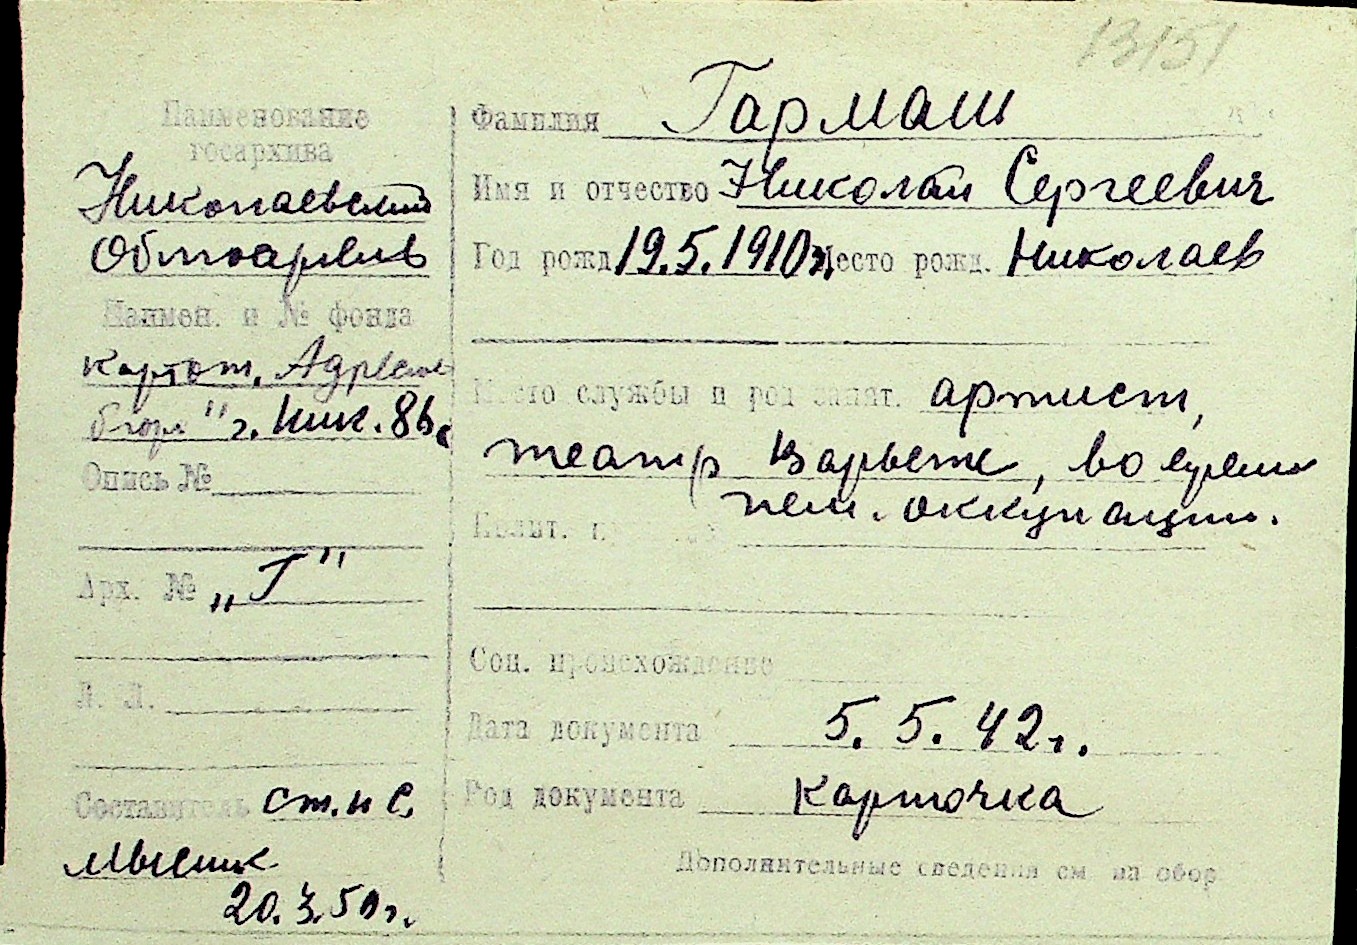 13151
Наименование
госархива
Николаевский
Облгосархив
Наимен. и № фонда
Картот. Адресн
бюро" г. Ник.
Опись №
Арх. № „Г"
Л. Л.
Составитель ст. н с.
20.3.50 г.
Фамилия Гармаш
Имя и отчество Николай Сергеевич
Год рожд 19.5.1910 г. Место рожд. Николаев
Место службы и род занят. артист,
театр Варьете, во время
нем. оккупации.
Полит.
Соц. происхождение
Дата документа 5.5.42 г.
Род документа Карточка
Дополнительные сведения см на обор